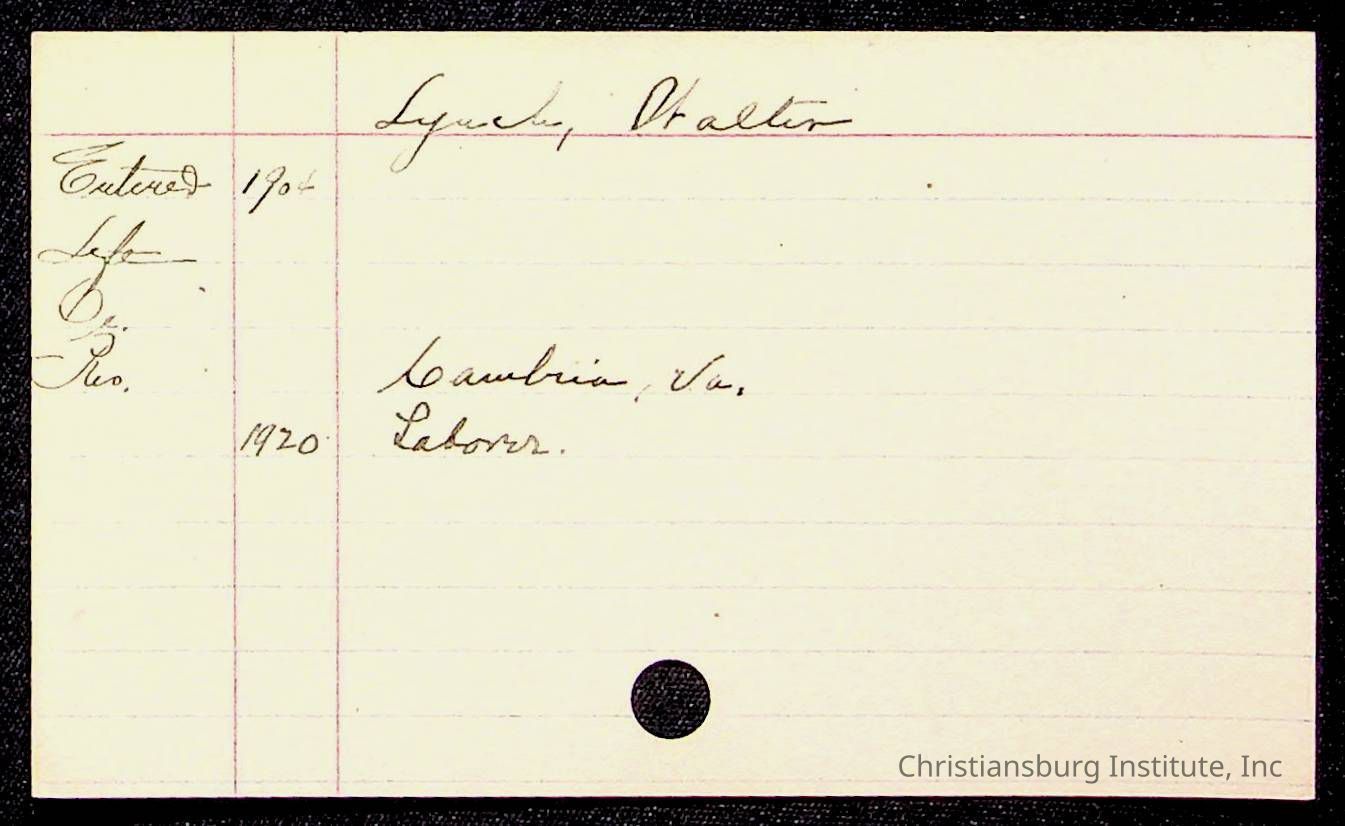 Lynch, Walter
Entered 1904
Left
Gr.
Res. Cambria, Va.
1920 Laborer.
Christiansburg Institute, Inc